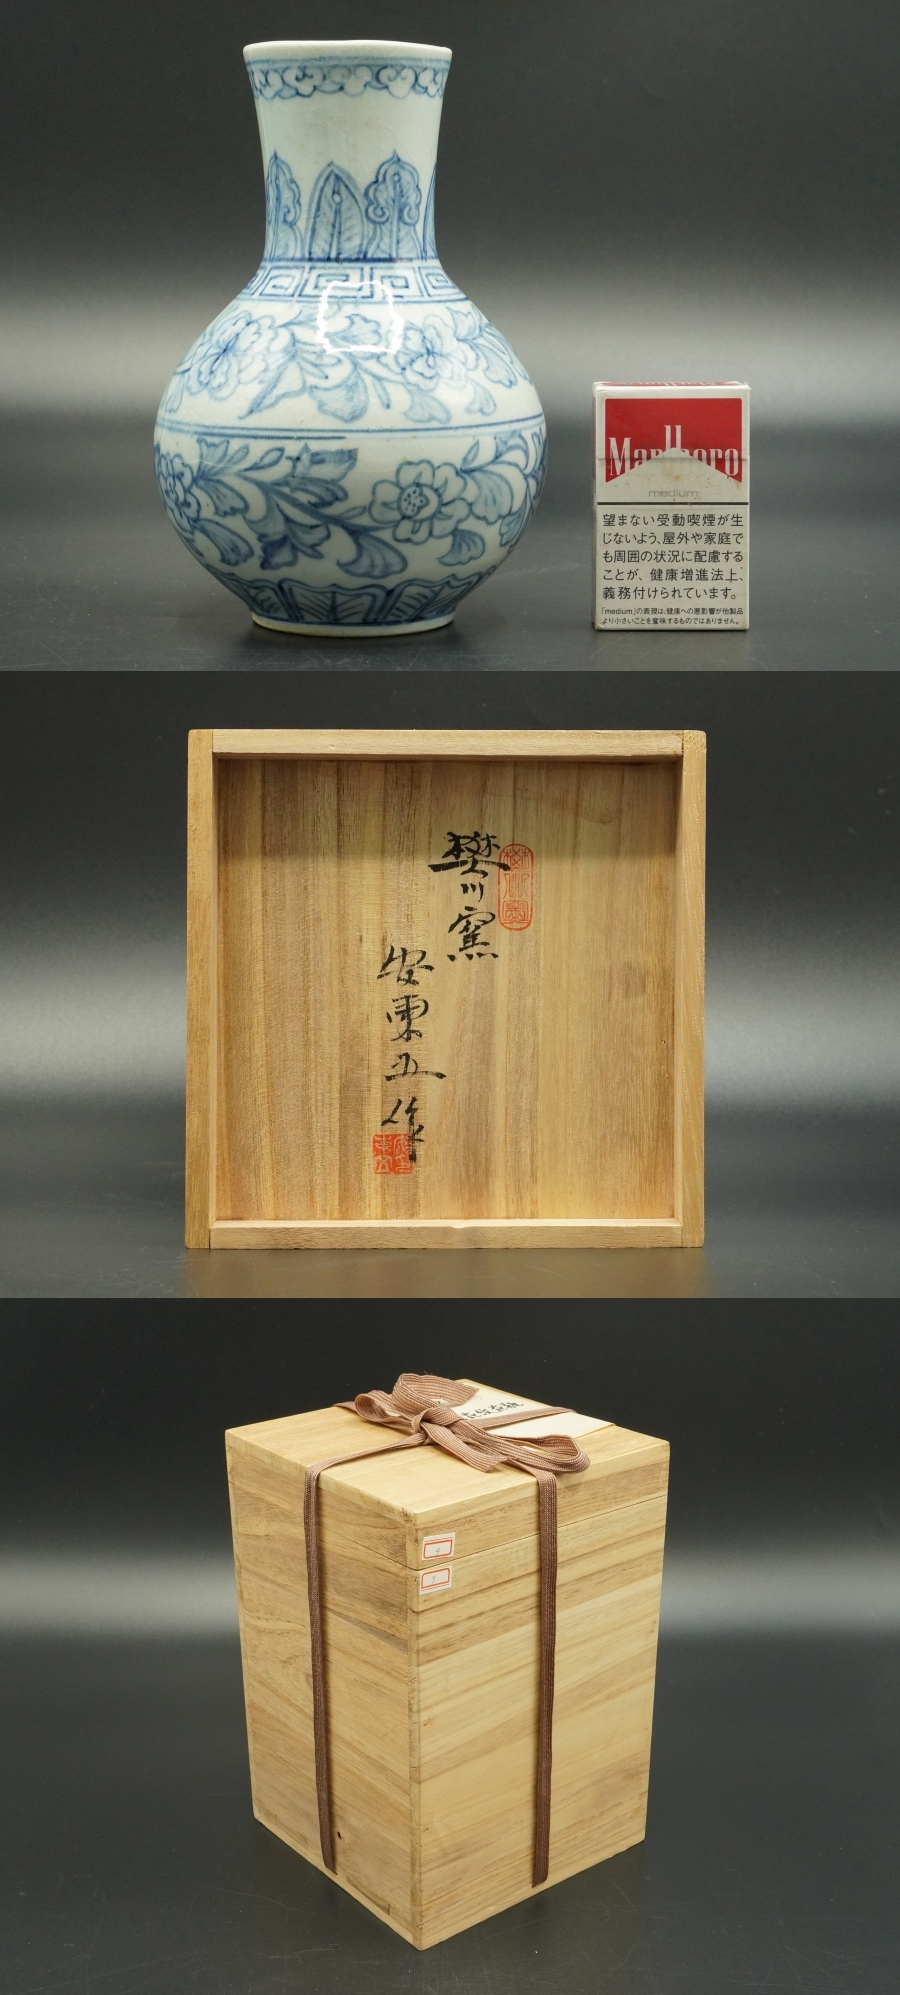 Marlboro
medium
望まない受動喫煙が生
じないよう、屋外や家庭で
も周囲の状況に配慮する
ことが、健康増進法上、
義務付けられています。
「medium」の表現は、健康への悪影響が他製品
より小さいことを意味するものではありません。
樊川窯
安東五作